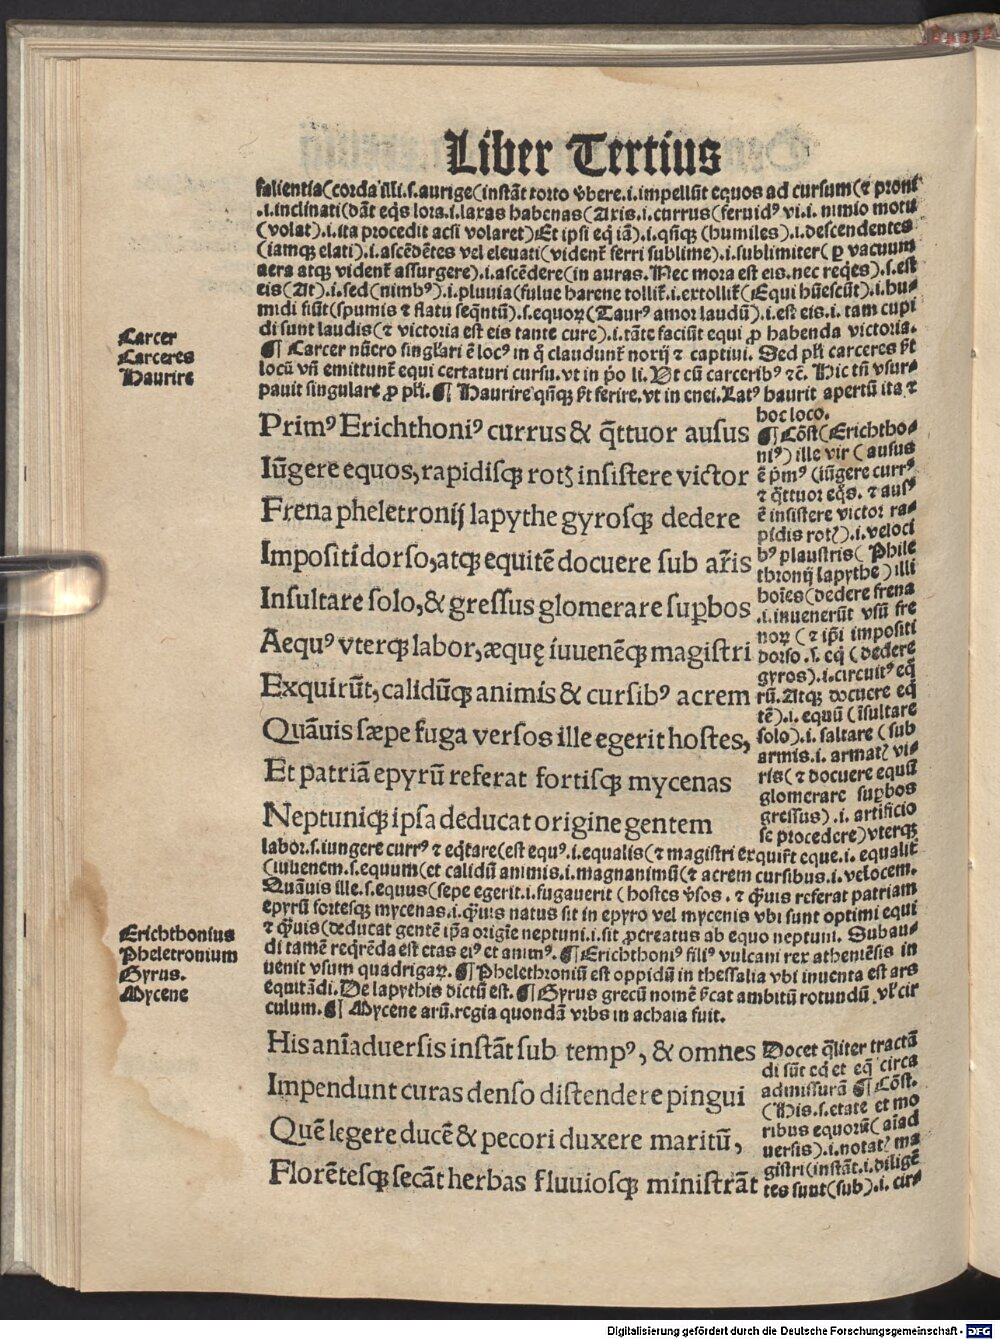 Liber Tertius
salientia(corda illi.s.aurige(instāt torto v̄bere.i.impellūt equos ad cursum(⁊ proni
.i.inclinati(dāt eq̄s lora.i.laxas habenas(Axis.i.currus(feruidꝰ vi.i. nimio motu
(volat).i.ita procedit acsi volaret)Et ipsi eq̄ iā).i.qn̄qꝫ (humiles).i.descendentes
(iamqꝫ elati).i.ascēdētes vel eleuati(vident̄ ferri sublime).i.sublimiter(ꝑ vacuum
aera atqꝫ vident̄ assurgere).i.ascēdere(in auras. Nec mora est eis. nec reqes).s.est
eis(At).i.sed(nimbꝰ).i.pluuia(fulue harene tollit̄.i.extollit̄(Equi hūescūt).i.hu⸗
midi fiūt(spumis ⁊ flatu seqntū).s.equoꝝ(Tantꝰ amor laudū).i.est eis.i. tam cupi
di sunt laudis(⁊ victoria est eis tante cure).i.tāte faciūt equi ꝓ habenda victoria.
¶ Carcer nūero singlari ē locꝰ in q̄ claudunt̄ norij ⁊ captiui. Sed pl̄i carceres s̄t
locū vn̄ emittunt̄ equi certaturi cursu. vt in p̄o li. Ut cū carceribꝰ ⁊c̄. Hic tn̄ vsur⸗
pauit singulare ꝓ pl̄i. ¶ Haurire qn̄qꝫ s̄t ferire. vt in enei. Latꝰ haurit apertū ita ⁊
hoc loco.
Carcer
Carceres
Haurire
Primꝰ Erichthoniꝰ currus & q̄ttuor ausus
Iūgere equos, rapidisqꝫ rotꝫ insistere victor
Frena pheletronij lapythe gyrosqꝫ dedere
Impositi dorso, atqꝫ equitē docuere sub ar̄is
Insultare solo, & gressus glomerare suꝑbos
Aequꝰ vterqꝫ labor, æquę iuuenēqꝫ magistri
Exquirūt, calidūqꝫ animis & cursibꝰ acrem
Quāuis sæpe fuga versos ille egerit hostes,
Et patriā epyrū referat fortisqꝫ mycenas
Neptuniqꝫ ipsa deducat origine gentem
¶ Cōst(Erichtho⸗
niꝰ) ille vir (ausus
ē p̄mꝰ (iūgere currꝰ
⁊ q̄ttuor eq̄s. ⁊ ausꝰ
ē insistere victor ra⸗
pidis rotꝭ).i.veloci
bꝰ plaustris( Phile
thronij lapythe) illi
hoīes(dedere frena
.i.inuenerūt vsū fre
noꝝ (⁊ ip̄i impositi
dorso .s. eq̄ (dedere
gyros).i.circuitꝰ eq̄
rū. Atqꝫ docuere eq̄
tē).i. equū (īsultare
solo).i. saltare (sub
armis.i. armatꝭ vi⸗
ris(⁊ docuere equū
glomerare suꝑbos
gressus).i. artificio
se procedere)vterqꝫ
labor.s.iungere currꝰ ⁊ eq̄tare(est equꝰ.i.equalis(⁊ magistri exquir̄t eque.i. equalit̄
(iuuenem.s.equum(et calidū animis.i.magnanimū(⁊ acrem cursibus.i.velocem.
Quāuis ille.s.equus(sepe egerit.i.fugauerit (hostes v̄sos. ⁊ q̄uis referat patriam
epyrū fortesqꝫ mycenas.i.q̄uis natus sit in epyro vel mycenis vbi sunt optimi equi
⁊ q̄uis(deducat gentē ip̄a origīe neptuni.i.sit ꝓcreatus ab equo neptuni. Subau⸗
di tamē reqrēda est etas eiꝰ et animꝰ. ¶ Erichthoniꝰ filiꝰ vulcani rex atheniēsis in
uenit vsum quadrigaꝝ. ¶ Phelethroniū est oppidū in thessalia vbi inuenta est ars
equitādi. De lapythis dictū est. ¶ Gyrus grecū nomē s̄cat ambitū rotundū vl̄ cir
culum. ¶ Mycene arū. regia quondā vrbs in achaia fuit.
Erichthonius
Pheletronium
Gyrus.
Mycene
His aīaduersis instāt sub tempꝰ, & omnes
Impendunt curas denso distendere pingui
Quē legere ducē & pecori duxere maritū,
Florētesqꝫ secāt herbas fluuiosqꝫ ministrāt
Docet q̄liter tractā
di sūt eq̄ et eq̄ circa
admissurā ¶ Cōst.
(His.s.etate et mo
ribus equorū(aīad
uersis).i.notatꝭ ma
gistri(instāt.i.diligē
tes sunt(sub).i. cir⸗
Digitalisierung gefördert durch die Deutsche Forschungsgemeinschaft - DFG